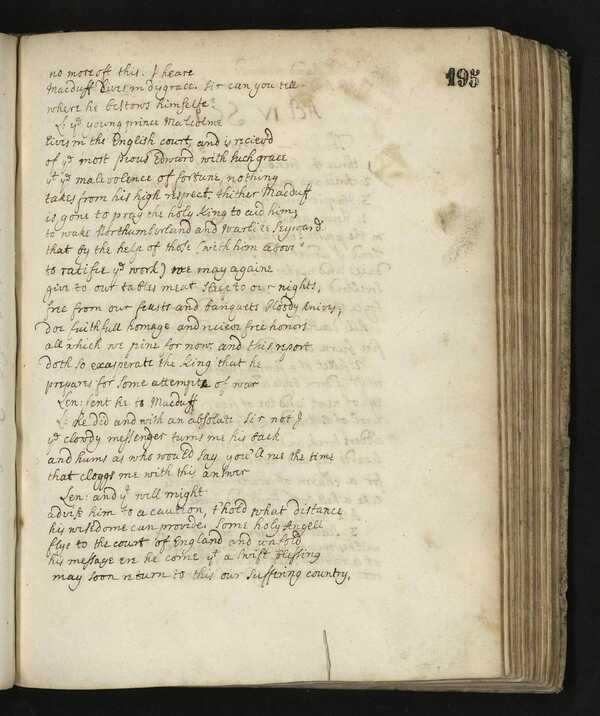 195
no more off this. I heare
Macduff lives in disgrace. Sir can you tell
where he bestows himselfe?
L: yᵉ young prince Malcolme
lives in the English court, and is reciev'd
of yᵉ most pious Edward with such grace
yᵗ yᵉ malevolence of fortune, nothing
takes from his high respect. thither Macduff
is gone to pray the holy king to aid him,
to wake Northumberland and warlike Seyward
that by the help of those (with him above
to ratifie yᵉ work) we may againe
give to our tables meat sleep to our nights,
free from our feasts and banquets bloody knives,
doe faithfull homage and recieve free honors
all which we pine for now. and this report
doth so exasperate the king that he
prepares for some attempte of war
Len: sent he to Macduff
L: he did and with an absolute Sir not I
yᵉ clowdy messenger turns me his back
and hums as who would say you'll rue the time
that cloggs me with this answer
Len: and yᵗ well might
advise him to a caution, t'hold what distance
his wisedome can provide. Some holy Angell
flye to the court of England and unfold
his message ere he come yᵗ a swift blessing
may soon return to this our suffering country,